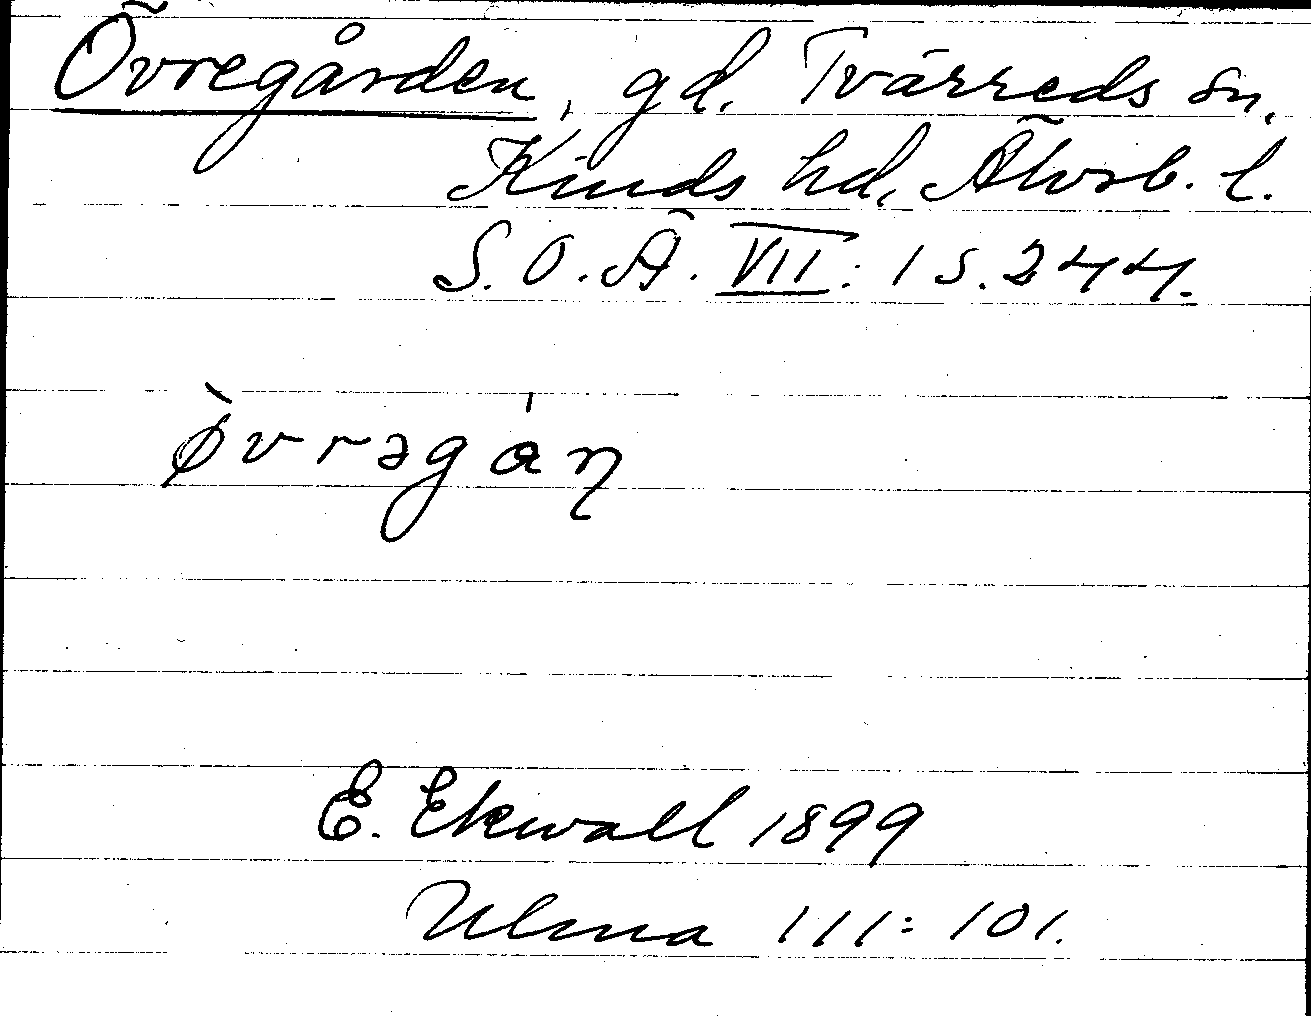 Övregården, gd. Tvärreds sn.
Kinds hd, Älvsb. l.
S.O.Ä. VII: 1 s. 244.
ø̀vrəgáṇ
E. Ekwall 1899
Ulma 111:101.